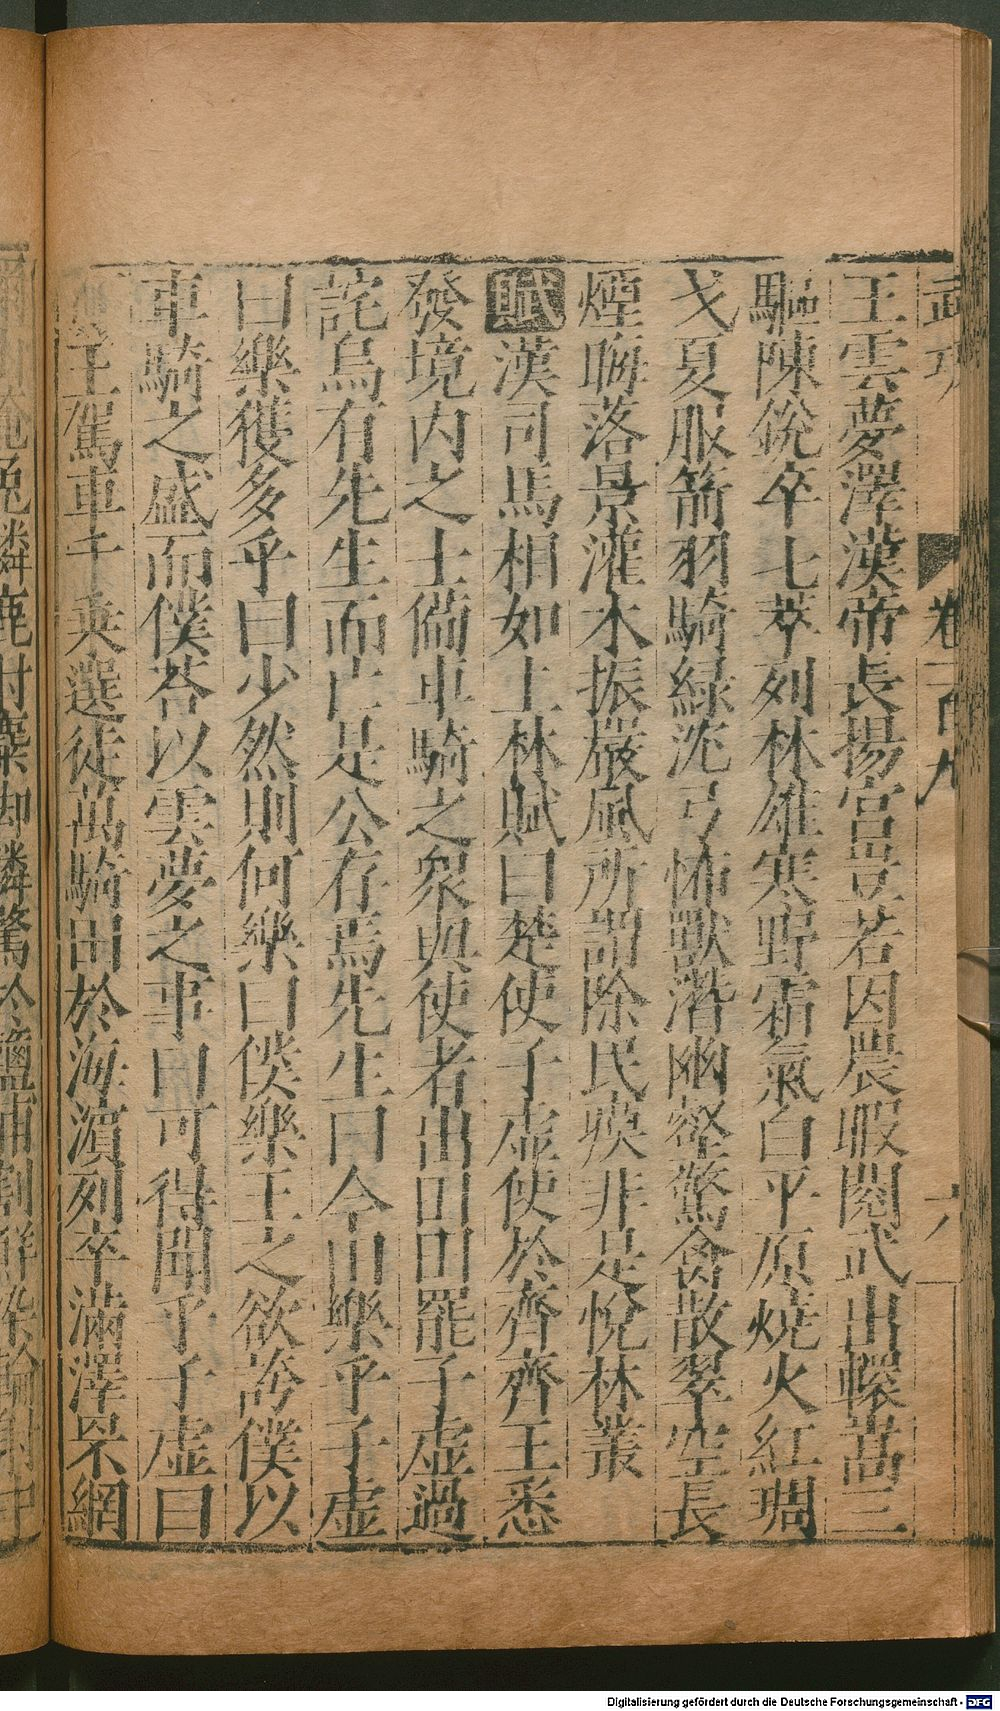 武功 卷一百九 六
王雲夢澤漢帝長揚宮豈若因農暇閱武出轘嵩三
驅陳銳卒七萃列林雄寒野霜氣白平原燒火紅琱
戈夏服箭羽騎綠沈弓怖獸潛幽壑驚禽散翠空長
煙晦落景灌木振嚴風所謂除民瘼非是悅林叢
賦漢司馬相如上林賦曰楚使子虛使於齊齊王悉
發境內之士備車騎之衆與使者出田田罷子虛過
詫烏有先生而亡是公存焉先生曰今田樂乎子虛
曰樂獲多乎曰少然則何樂曰僕樂王之欲誇僕以
車騎之盛而僕荅以雲夢之事曰可得聞乎子虛曰
王駕車千乘選徒萬騎田於海濱列卒滿澤罘網
兔轔鹿射麋
Digitalisierung gefördert durch die Deutsche Forschungsgemeinschaft - DFG